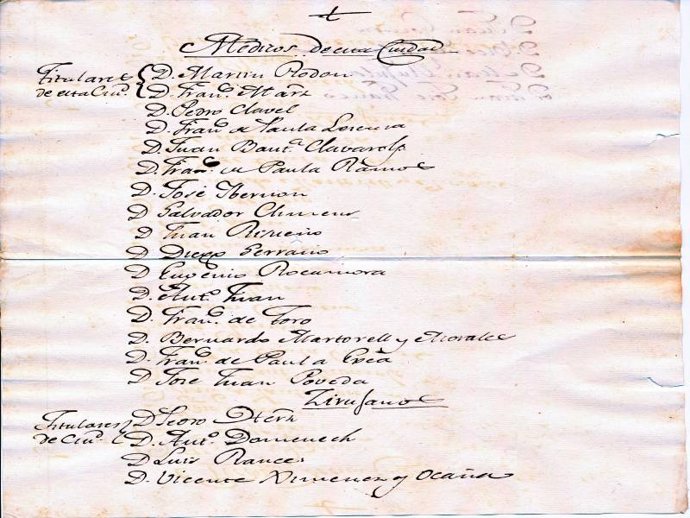 Medicos de esta Ciudad
Titulares de esta Ciu.^d
D. Martin Rodon
D. Fran.^co Mark
D. Pedro Clavel
D. Fran.^co de Paula Lorenza
D. Juan Baut.^a Clavarols
D. Fran.^co de Paula Ramos
D. José Ibernon
D. Salvador Climens
D. Juan
D. Diego Serrano
D. Eugenio Rocamora
D. Ant.^o Juan
D. Fran.^co de Toro
D. Bernardo Martorell y Morales
D. Fran.^co de Paula
D. Jose Juan Poveda
Zirujanos
Titulares de Ciu.^d
D. Pedro
D. Ant.^o Domenech
D. Luis Rances
D. Vicente Ximenez y Ocaña